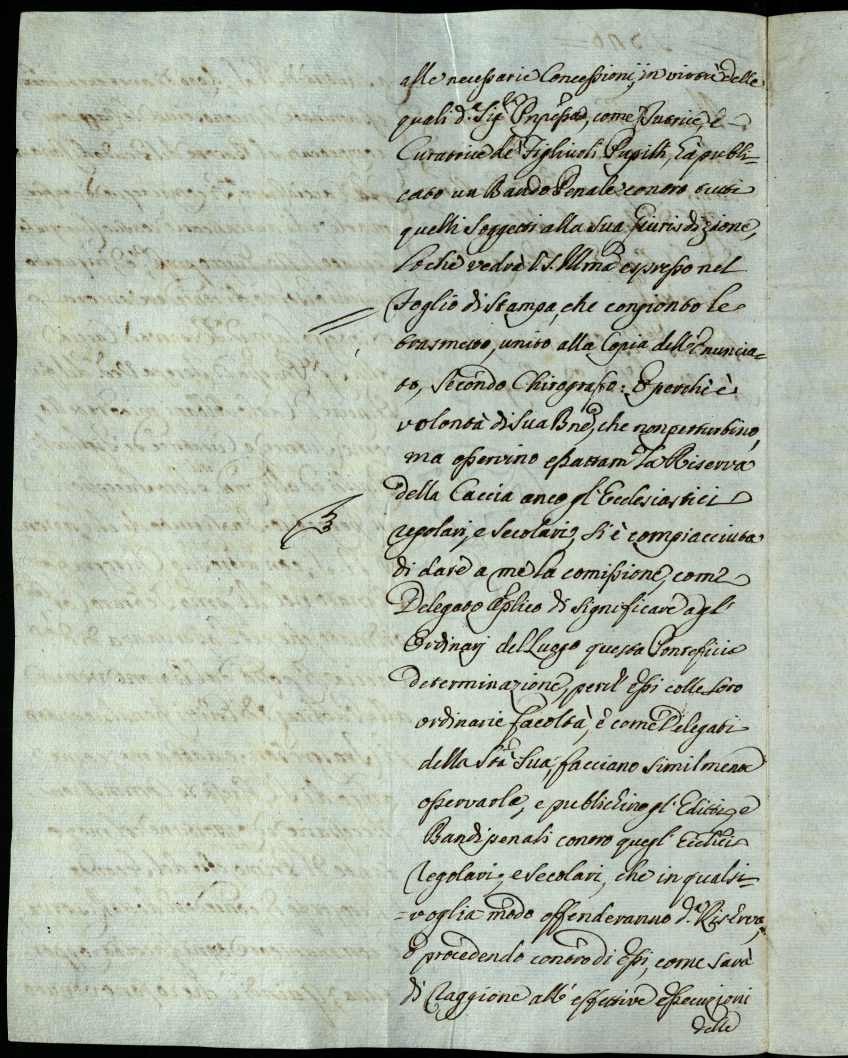 alle necessarie Concessioni, in virtù delle
quali d.ª Sig.ra Pnpessa, come Tutrice, e
Curatrice de' Figliuoli Pupilli, hà publi=
cato un Bando Penale contro tutti
quelli soggetti alla sua Giurisdizione,
lo chè vedrà V.S. Illma espresso nel
Foglio di Stampa, che congionto le
trasmetto, unito alla Copia dell' Enuncia=
to, secondo Chirografo: E perchè è
volontà di Sua Bne, che non perturbino,
ma osservino esattam.te la Riserva
della Caccia anco gl' Ecclesiastici
regolari, e secolari, si è compiacciuta
di dare a me la comissione, come
Delegato Aplico di significare agl'
Ordinarj del Luogo questa Pontificia
determinazione, per il Essi colle loro
ordinarie facoltà, e come Delegati
della Stà Sua, facciano similmente
osservarla, e publichino gl' Editti, e
Bandi penali contro quegl' Ecclici
Regolari, e secolari, che in qualsi=
=voglia modo offenderanno d.ª Riserva,
e procedendo contro di Essi, come sarà
di Raggione all' effettive essecuzioni
delle